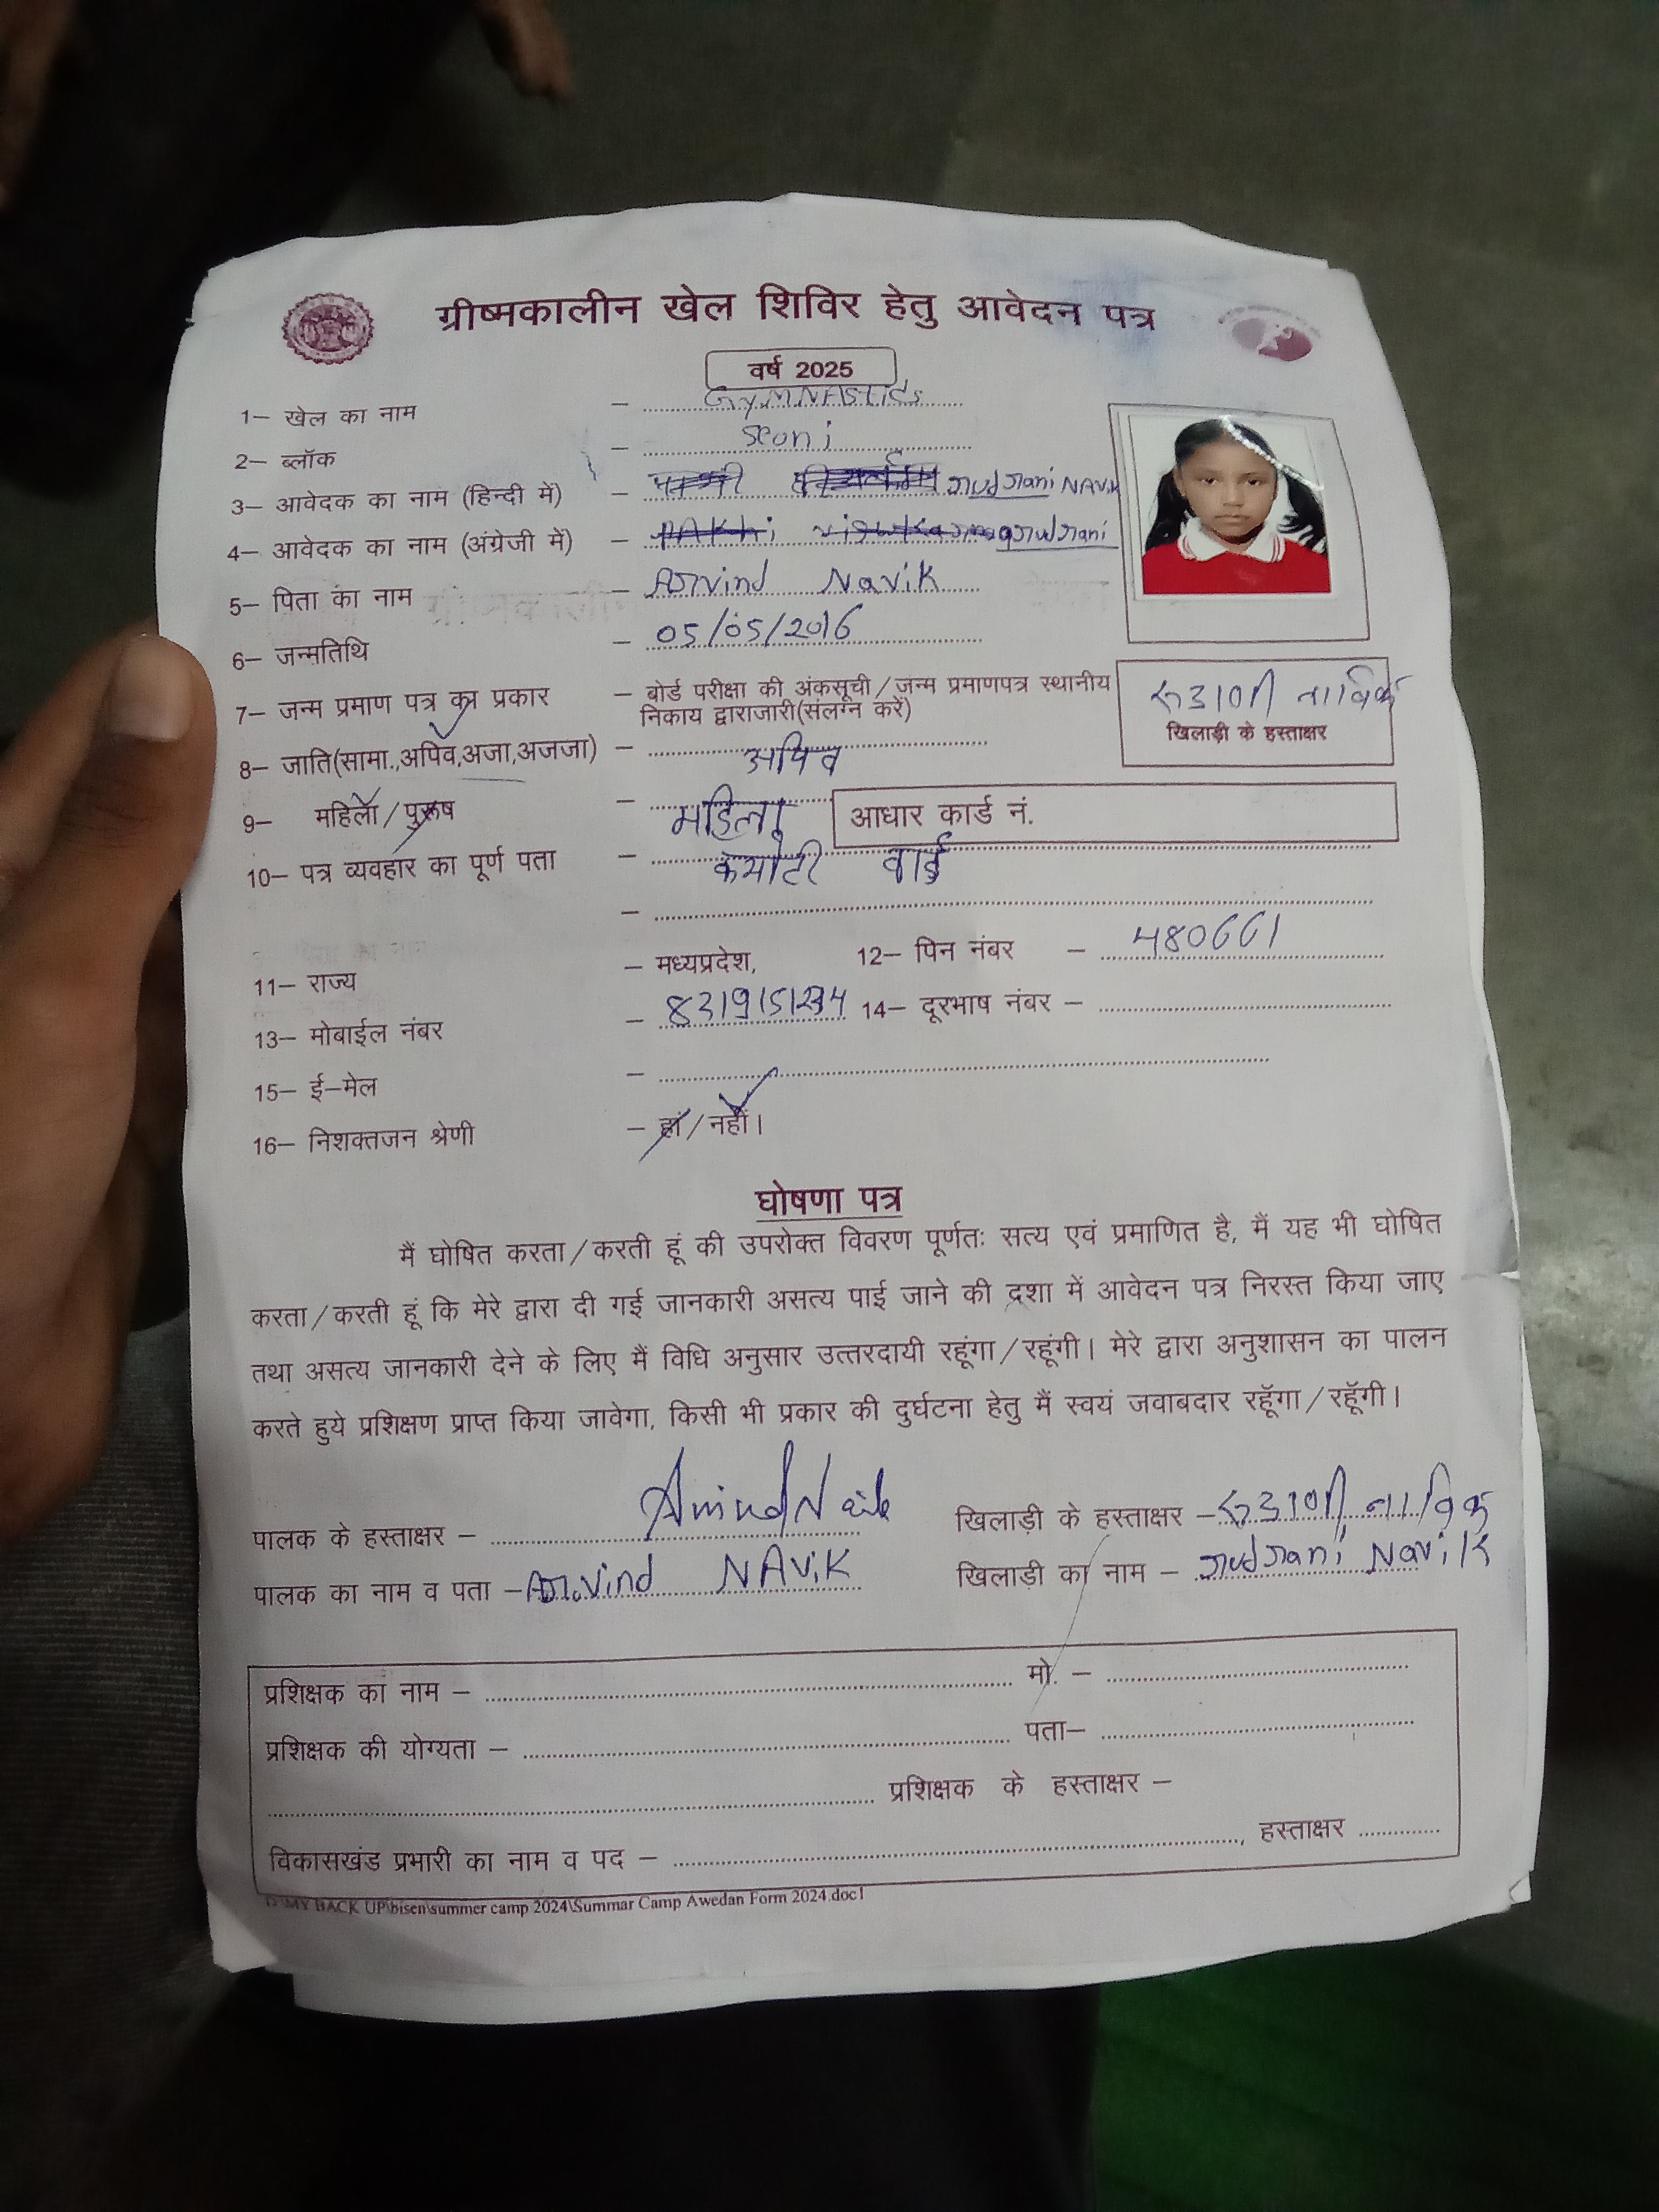 ग्रीष्मकालीन खेल शिविर हेतु आवेदन पत्र
वर्ष 2025
1– खेल का नाम – GYMNAStics
2– ब्लॉक – seoni
3– आवेदक का नाम (हिन्दी में) – NAVik
4– आवेदक का नाम (अंग्रेजी में) –
5– पिता का नाम – Arvind Navik
6– जन्मतिथि – 05/05/2016
7– जन्म प्रमाण पत्र का प्रकार – बोर्ड परीक्षा की अंकसूची/जन्म प्रमाणपत्र स्थानीय
निकाय द्वाराजारी(संलग्न करें)
नाविक
खिलाड़ी के हस्ताक्षर
8– जाति(सामा.,अपिव,अजा,अजजा) – अपिव
9– महिला/पुरूष – महिला
आधार कार्ड नं.
10– पत्र व्यवहार का पूर्ण पता – वार्ड
–
11– राज्य – मध्यप्रदेश, 12– पिन नंबर – 480661
13– मोबाईल नंबर – 14– दूरभाष नंबर –
15– ई–मेल –
16– निशक्तजन श्रेणी – हां/नहीं।
घोषणा पत्र
मैं घोषित करता/करती हूं की उपरोक्त विवरण पूर्णतः सत्य एवं प्रमाणित है, मैं यह भी घोषित
करता/करती हूं कि मेरे द्वारा दी गई जानकारी असत्य पाई जाने की दशा में आवेदन पत्र निरस्त किया जाए
तथा असत्य जानकारी देने के लिए मैं विधि अनुसार उत्तरदायी रहूंगा/रहूंगी। मेरे द्वारा अनुशासन का पालन
करते हुये प्रशिक्षण प्राप्त किया जावेगा, किसी भी प्रकार की दुर्घटना हेतु मैं स्वयं जवाबदार रहूँगा/रहूँगी।
पालक के हस्ताक्षर – खिलाड़ी के हस्ताक्षर – नाविक
पालक का नाम व पता – Arvind NAViK खिलाड़ी का नाम – Navik
प्रशिक्षक का नाम – मो. –
प्रशिक्षक की योग्यता – पता–
प्रशिक्षक के हस्ताक्षर –
विकासखंड प्रभारी का नाम व पद – , हस्ताक्षर
D:\MY BACK UP\bisen\summer camp 2024\Summar Camp Awedan Form 2024.doc1